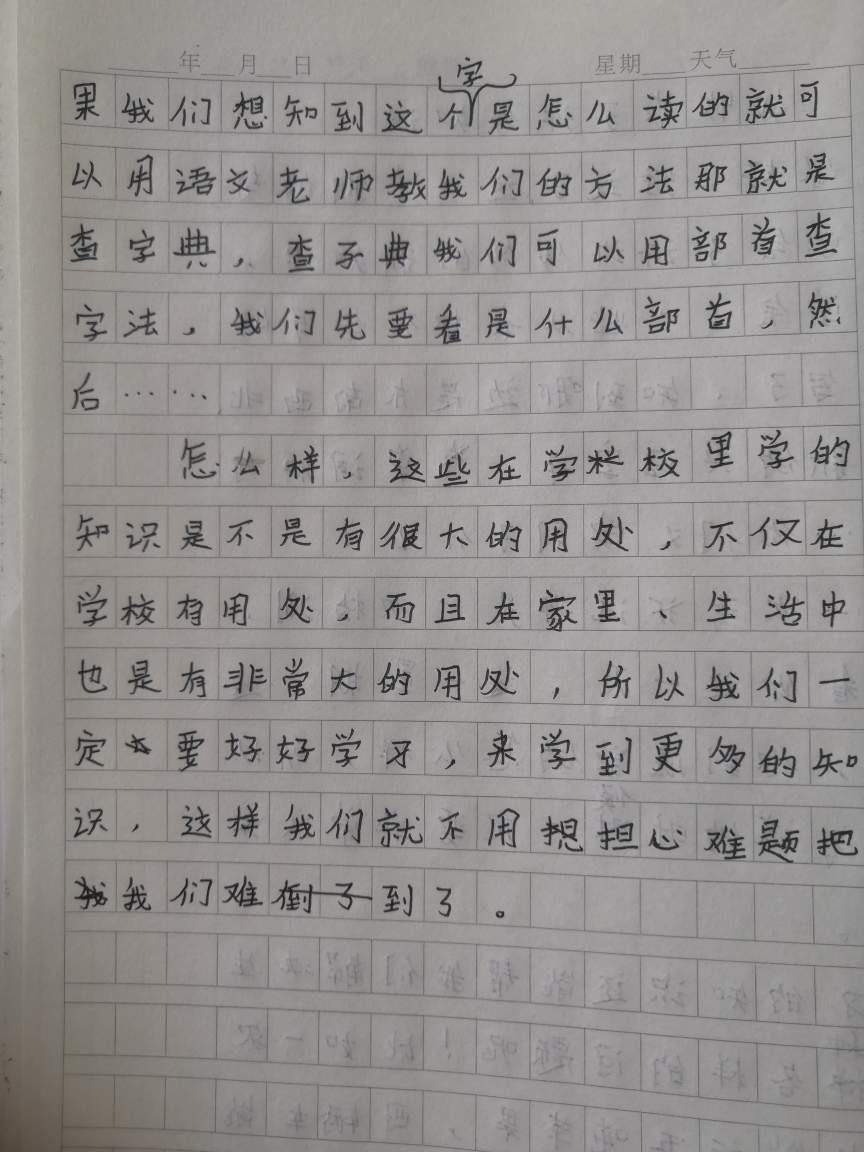 年 月 日 星期 天气
字
果我们想知到这个是怎么读的就可
以用语文老师教我们的方法那就是
查字典，查子典我们可以用部首查
字法，我们先要看是什么部首，然
后……
怎么样，这些在学校里学的
知识是不是有很大的用处，不仅在
学校有用处，而且在家里、生活中
也是有非常大的用处，所以我们一
定要好好学习，来学到更多的知
识，这样我们就不用担心难题把
我们难到了。